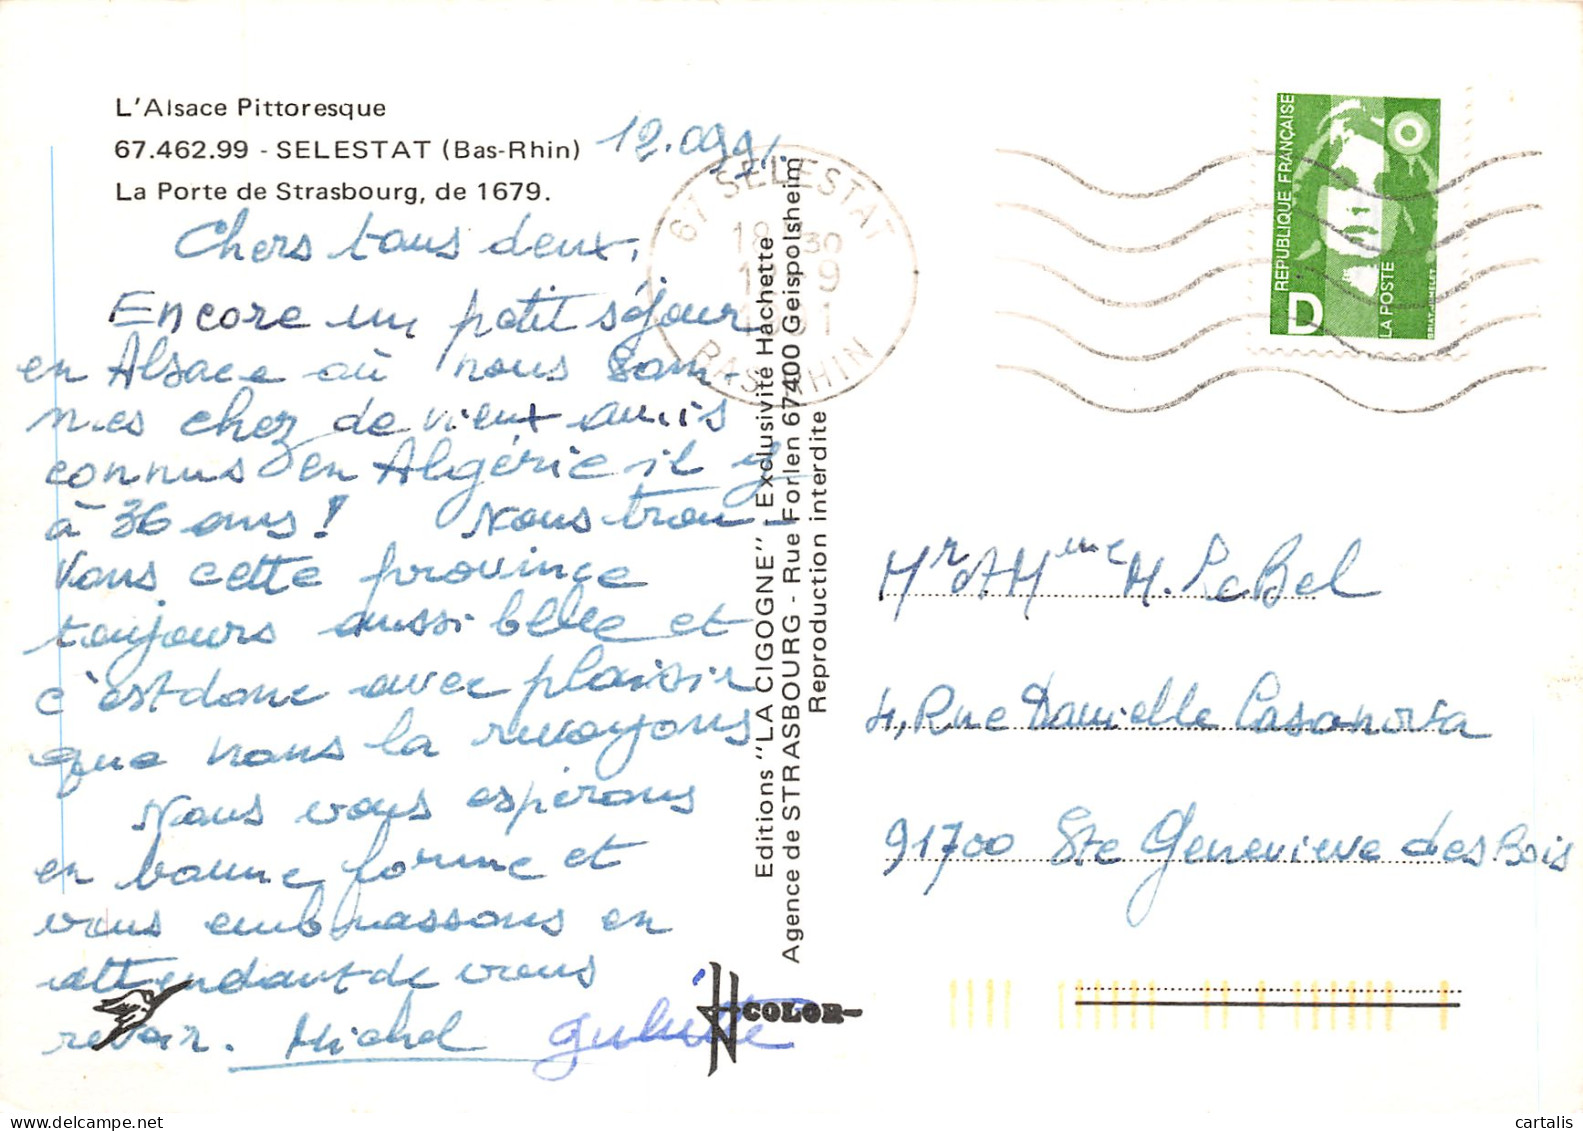 L'Alsace Pittoresque
67.462.99 - SELESTAT (Bas-Rhin)
La Porte de Strasbourg, de 1679.
12.09.91.
Chers tous deux,
Encore un petit séjour
en Alsace où nous som-
mes chez de vieux amis
connus en Algérie il y
à 36 ans! Nous trou-
vons cette province
toujours aussi belle et
c'est donc avec plaisir
que nous la revoyons
Nous vous espérons
en bonne forme et
vous embrassons en
attendant de vous
revoir. Michel
Editions "LA CIGOGNE" - Exclusivité Hachette
Agence de STRASBOURG - Rue Forlen 67400 Geispolsheim
Reproduction interdite
COLOR
67 SELESTAT
18 H 30
12-9
1991
BAS RHIN
RÉPUBLIQUE FRANÇAISE
D
LA POSTE
BRIAT-JUMELET
Mr et Mme M. LeBel
4, Rue Danielle Casanova
91700 Ste Genevieve des Bois
cartalis